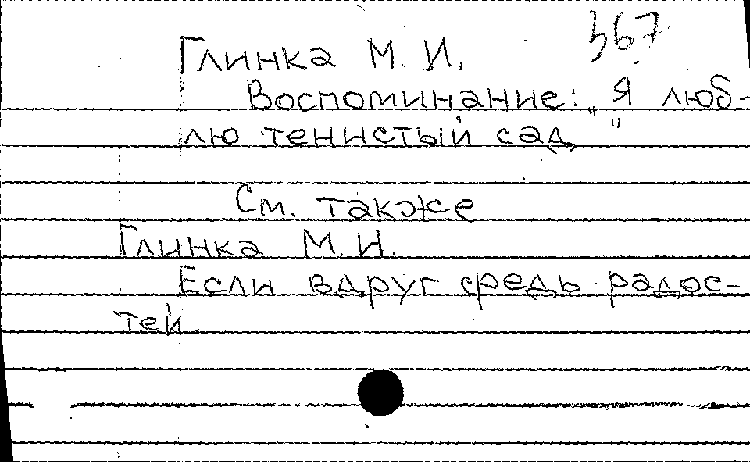 367
Глинка М. И.
Воспоминание: „Я люб-
лю тенистый сад"
См. также
Глинка М. И.
Если вдруг средь радос-
тей